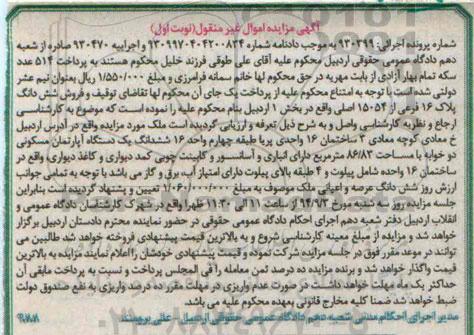 آگهی مزایده اموال غیر منقول(نوبت اول)
شماره پرونده اجرائی: ۹۳۰۳۹۹ به موجب دادنامه شماره ۹۳۰۹۹۷۰۴۰۴۲۰۰۸۳۴ و اجراییه ۹۳۰۴۷۰ صادره از شعبه
دهم دادگاه عمومی حقوقی اردبیل محکوم علیه آقای علی طوقی فرزند خلیل محکوم هستند به پرداخت ۵۱۴ عدد
سکه تمام بهار آزادی از بابت مهریه در حق محکوم لها خانم سمانه فرامرزی و مبلغ ۱/۵۵۰/۰۰۰ ریال بعنوان نیم عشر
دولتی شده است با توجه به امتناع محکوم علیه از پرداخت یک جای آن محکوم لها تقاضای توقیف و فروش شش دانگ
پلاک ۱۶ فرعی از ۱۵۰۵۴ اصلی واقع در بخش ۱ اردبیل بنام محکوم علیه را نموده است که موضوع به کارشناسی
ارجاع و نظریه کارشناسی واصل و به شرح ذیل تعرفه و ارزیابی گردیده است ملک مورد مزایده واقع در آدرس اردبیل
خ معادی کوچه معادی ۳ ساختمان ۱۶ واحدی پریا طبقه چهارم واحد ۱۶ ششدانگ یک دستگاه آپارتمان مسکونی
دو خوابه با مساحت ۸۶/۸۳ مترمربع دارای انباری و آسانسور و کابینت چوبی کمد دیواری و کاغذ دیواری واقع در
ساختمان ۱۶ واحده شامل پیلوت و ۴ طبقه بالای پیلوت دارای امتیاز آب، برق و گاز می باشد با توجه به تمامی جوانب
ارزش روز شش دانگ عرصه و اعیانی ملک موصوف به مبلغ ۱/۰۶۰/۰۰۰/۰۰۰ تعیین و پیشنهاد گردیده است بنابراین
جلسه مزایده روز سه شنبه مورخ ۹۴/۹/۳ از ساعت ۱۱ الی ۱۱:۳۰ ظهر واقع در شهرک کارشناسان دادگاه عمومی و
انقلاب اردبیل دفتر شعبه دهم اجرای احکام دادگاه عمومی حقوقی در حضور نماینده محترم دادستان اردبیل برگزار
خواهد شد و مزایده از مبلغ معینه کارشناسی شروع و به بالاترین قیمت پیشنهادی فروخته خواهد شد طالبین می
توانند در موعد مقرر فوق در جلسه مزایده شرکت نموده و قیمت پیشنهادی خودشان را اعلام نمایند مزایده به بالاترین
قیمت واگذار خواهد شد و برنده مزایده ده درصد ثمن معامله را فی المجلس پرداخت و نسبت به پرداخت مابقی آن
حداکثر یک ماه مهلت خواهد داشت در صورت عدم واریزی در مهلت مقرر ده درصد واریزی به نفع صندوق دولت
ضبط خواهد شد ضمنا کلیه مخارج قانونی بعهده محکوم علیه می باشد.
مدیر اجرای احکام مدنی شعبه دهم دادگاه عمومی حقوقی اردبیل - علی برومند